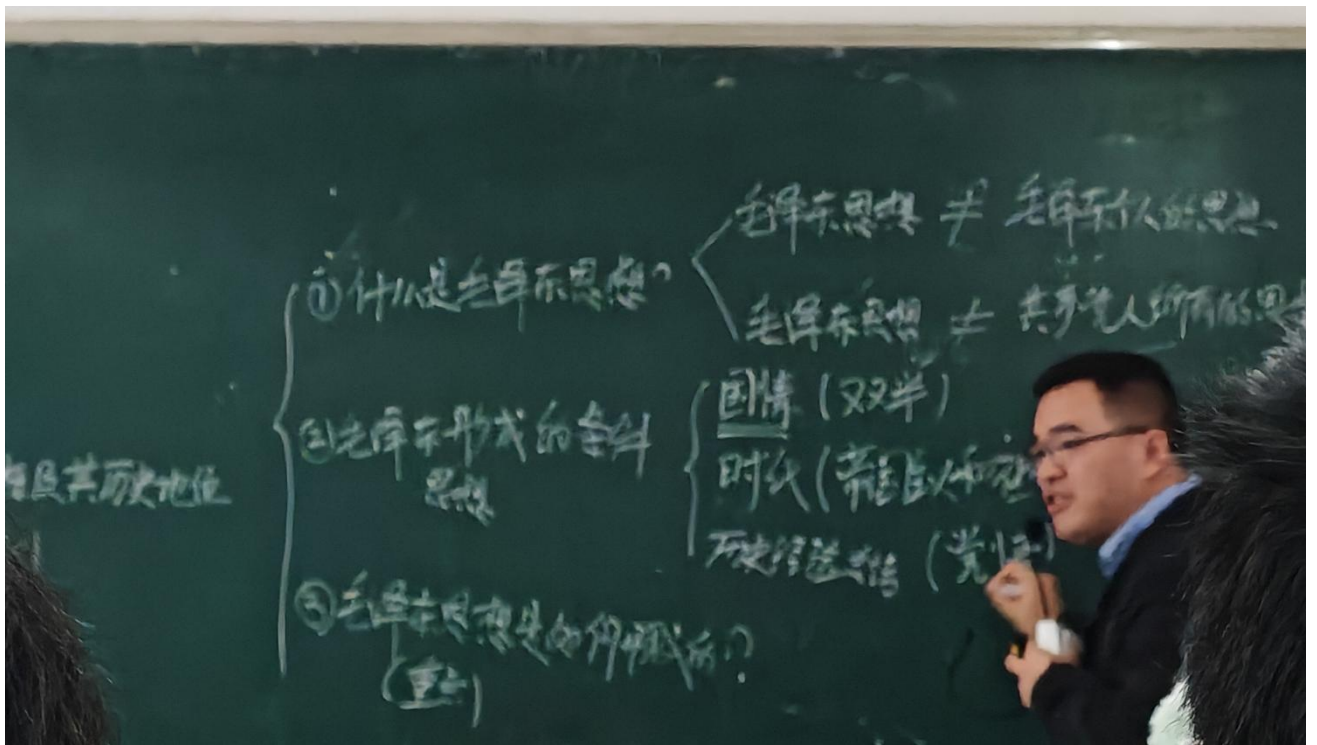 及其历史地位
①什么是毛泽东思想?
毛泽东思想 ≠ 毛泽东个人的思想
毛泽东思想 ≠ 共产党人所有的思
②毛泽东形成的条件
思想
国情(双半)
时代(帝国主义和
历史经验
③毛泽东思想是如何形成的?